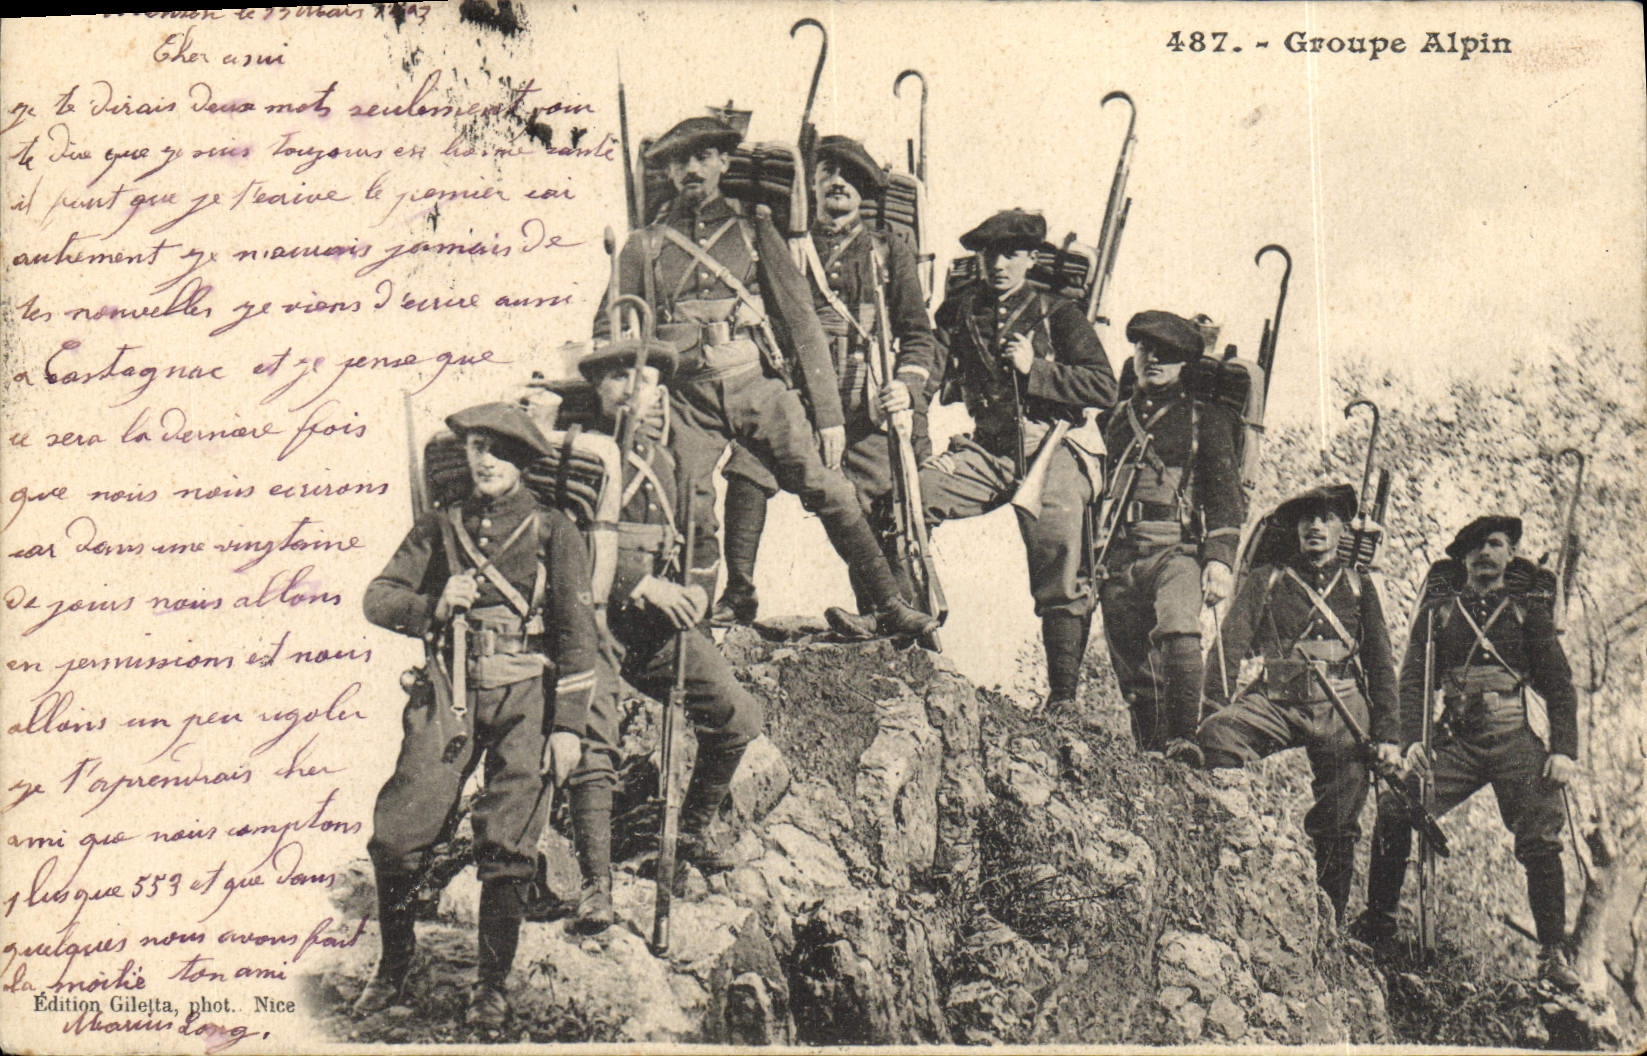 487. - Groupe Alpin
le 13 Mars
Cher ami
je te dirais deux mots seulement pour
te dire que je suis toujours en bonne santé
il faut que je t'ecrive le premier car
autrement je n'aurais jamais de
tes nouvelles je viens d'ecrire aussi
a Castagnac et je pense que
ce sera la derniere fois
que nous nous ecrirons
car dans une vingtaine
de jours nous allons
en permissions et nous
allons un peu rigoler
je t'aprendrais cher
ami que nous comptons
plus que 553 et que dans
quelques nous avons fait
la moitié ton ami
Édition Giletta, phot. Nice
Marius Long.